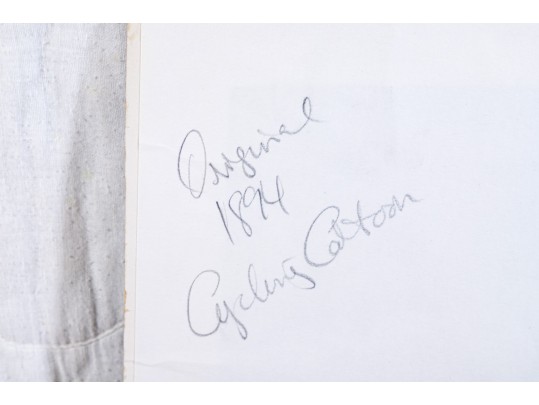 Original
1894
Cycling Catoon